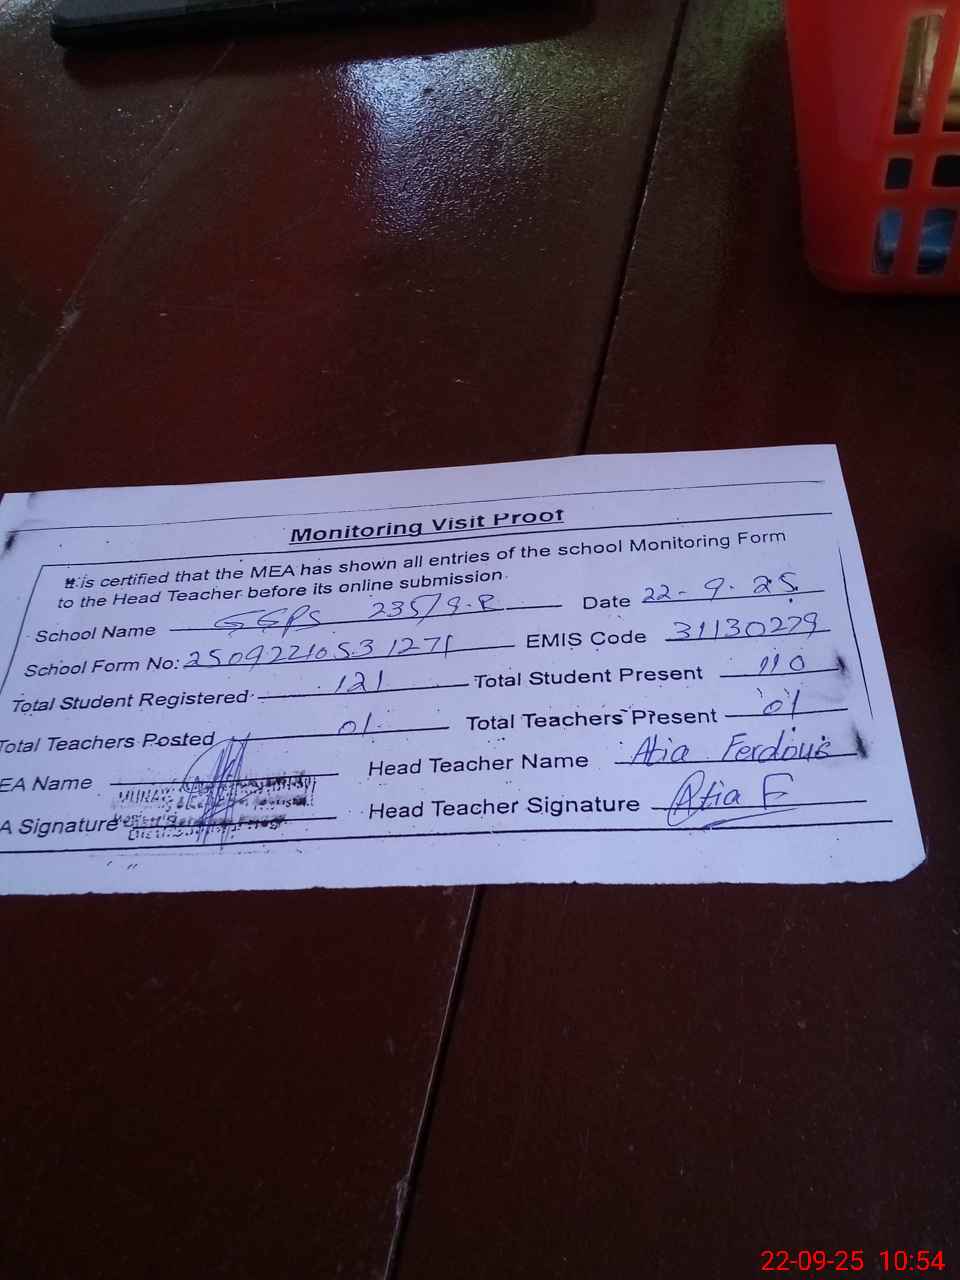 Monitoring Visit Proof
It is certified that the MEA has shown all entries of the school Monitoring Form
to the Head Teacher before its online submission.
School Name GGPS 235/9-R Date 22-9-25
School Form No: 25092210531271 EMIS Code 31130279
Total Student Registered 121 Total Student Present 110
Total Teachers Posted 01 Total Teachers Present 01
EA Name Head Teacher Name Atia Ferdous
A Signature Head Teacher Signature Atia F
22-09-25 10:54